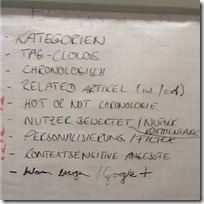 - KATEGORIEN
- TAG-CLOUDS
- CHRONOLOGISCH
- RELATED ARTIKEL (int/ext)
- HOT OR NOT CHRONOLOGIE
- NUTZER BEWERTET / NUTZER KOMMENTARE
- PERSONALISIERUNG / FILTER
- KONTEXTSENSITIVE ANGEBOTE
- / Google +